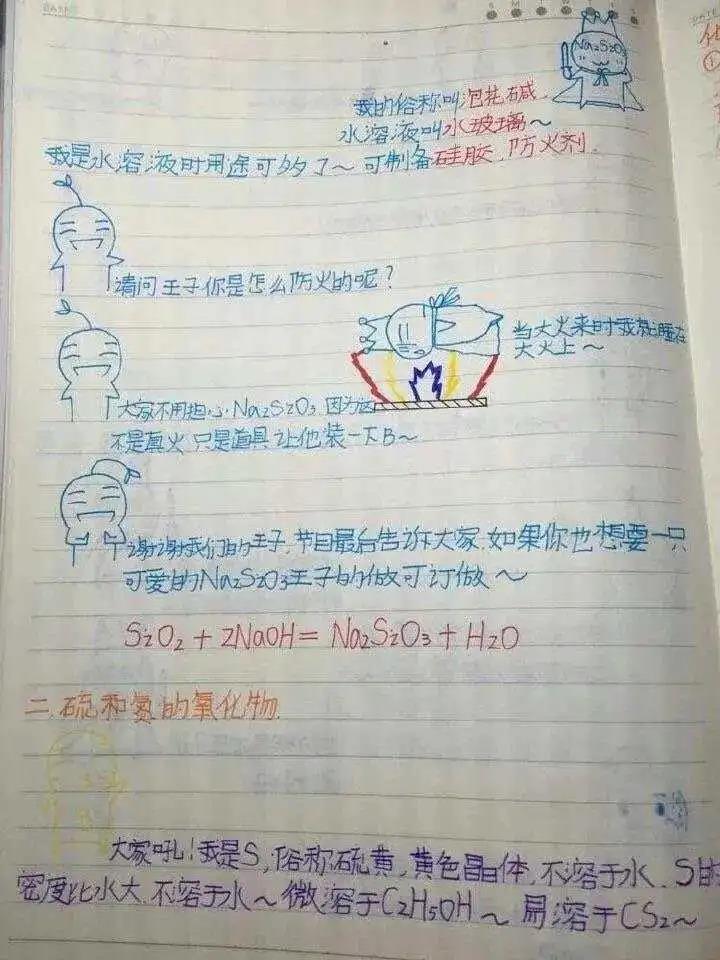 DATE
S M T W T F S
DATE
Na2SzO3
我的俗称叫泡花碱
水溶液叫水玻璃~
我是水溶液时用途可多了~ 可制备硅胶,防火剂.
请问王子你是怎么防火的呢?
当大火来时我就睡在
大火上~
大家不用担心Na2SzO3,因为这
不是真火,只是道具,让他装一下B~
谢谢我们的王子,节目最后告诉大家.如果你也想要一只
可爱的Na2SzO3王子的做可订做~
SzO2 + 2NaOH = Na2SzO3 + H2O
二.硫和氮的氧化物.
大家叽!我是S,俗称硫黄,黄色晶体,不溶于水.S的
密度比水大,不溶于水~微溶于C2H5OH~ 易溶于CS2~
化
①